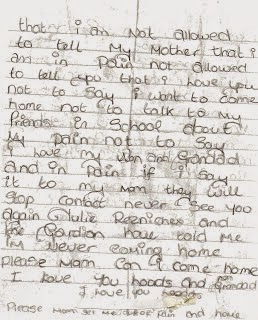 that i am not allowed
to tell my mother that i
am in pain not allowed
to tell you that i love you
not to say i want to come
home not to talk to my
friends in school about
my pain not to say
i love my Nan and Grandad
and in pain if i say
it to my mam they will
stop contact never see you
again Julie and
the Gardian have told me
I'm never coming home
please Mam can i come home
I love you hoods and nan Grandad
I love you
Please Mam get me out of pain and home